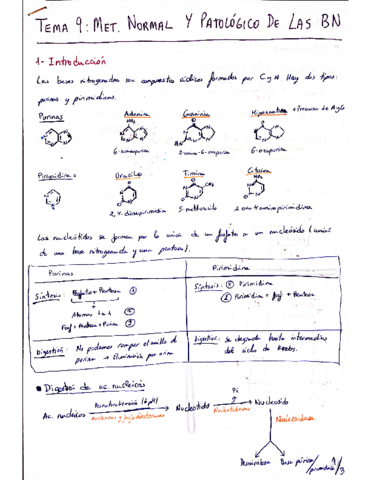 TEMA 9: MET. NORMAL Y PATOLÓGICO DE LAS BN
1- Introducción
Las bases nitrogenadas son compuestos cíclicos formados por C y N Hay dos tipos:
purinas y pirimidinas.
Purinas Adenina Guanina Hipoxantina
6-aminopurina 2-amino-6-oxopurina 6-oxopurina
Pirimidina: Uracilo Timina Citosina
2,4-dioxopirimidina 5-metiluracilo 2 oxo 4 amino pirimidina
Las nucleótidos se forman por la unión de un fosfato a un nucleósido (unión
de una base nitrogenada y una pentosa).
Purinas Pirimidina
Síntesis: Fosfato + Pentosa ① Síntesis: ① Pirimidina
+ ② Pirimidina + fosf + Pentosa
Átomos
Fosf + Pentosa + Purina ③
Digestión: No podemos romper el anillo de Digestión: Se degrada hasta intermedios
purina → Eliminación por orina del ciclo de Krebs.
Digestión de ac. nucleicos
Pi
Ac. nucleicos → Nucleótido → Nucleósido
nucleasas y fosfodiesterasas Nucleotidasas
Nucleosidasa
Base púrica/
pirimidínica
3